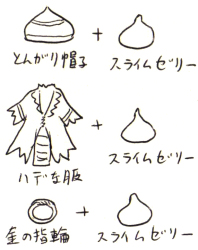 +
とんがり帽子 スライムゼリー
+
ハデな服 スライムゼリー
+
金の指輪 スライムゼリー